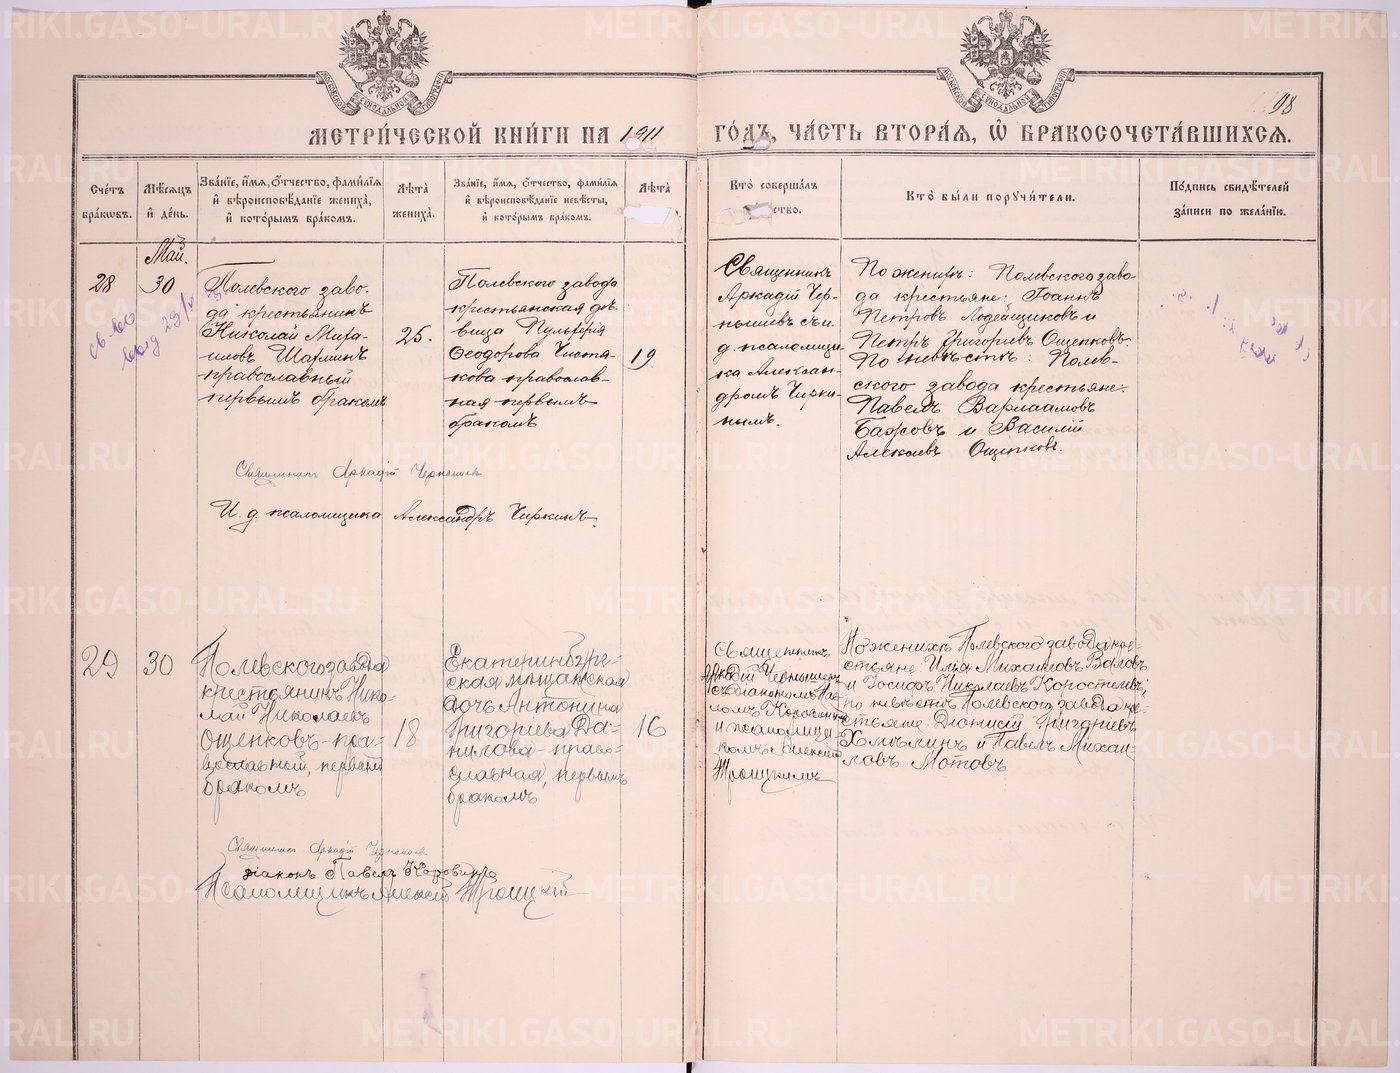 МЕТРИ́ЧЕСКОЙ КНИ́ГИ НА 1911
ГО́ДЪ, ЧА́СТЬ ВТОРА́Ѧ, Ѡ҆ БРАКОСОЧЕТА́ВШИХСѦ.
98
Сче́тъ бра́кѡвъ.
Мѣ́сѧцъ и҆ де́нь.
Зва́нїе, и҆́мѧ, ѻ҆́тчество, фами́лїѧ
и҆ вѣроисповѣ́данїе жениха̀,
и҆ кото́рымъ бра́комъ.
Лѣ́та жениха̀.
Зва́нїе, и҆́мѧ, ѻ҆́тчество, фами́лїѧ
и҆ вѣроисповѣ́данїе невѣ́сты,
и҆ кото́рымъ бра́комъ.
Лѣ́та
Кто̀ соверша́лъ
ство.
Кто̀ бы́ли порꙋчи́тели.
По́дпись свидѣ́телей
за́писи по жела́нїю.
Май.
28
30
Полевского заво-
да крестьянинъ
Николай Миха-
иловъ Шахминъ
православный
первымъ бракомъ
25.
Полевского завода
крестьянская дѣ-
вица Пульхерія
Ѳеодорова Чистя-
кова православ-
ная первымъ
бракомъ
19
Священникъ
Аркадій Чер-
нышевъ съ и.
д. псаломщи-
ка Алексан-
дромъ Чирки-
нымъ.
По женихѣ: Полевского заво-
да крестьяне: Іоаннъ
Петровъ Лодейщиковъ и
Петръ Григорьевъ Ощепковъ.
По невѣстѣ: Полев-
ского завода крестьяне:
Павелъ Варлаамовъ
Бажовъ и Василій
Алексѣевъ Ощепковъ.
Священникъ Аркадій Чернышевъ
И. д. псаломщика Александръ Чиркинъ.
29
30
Полевского завода
крестьянинъ Нико-
лай Николаевъ
Ощепковъ - пра-
вославный, первымъ
бракомъ
18
Екатеринбург-
ская мѣщанская
дочь Антонина
Григоріева Да-
нилова - право-
славная, первымъ
бракомъ
16
Священникъ
Аркадій Чернышевъ
съ діакономъ Пав-
ломъ Коровинымъ
и псаломщи-
комъ Алексіемъ
Троицкимъ
По женихѣ Полевского завода кре-
стьяне: Илья Михаиловъ Валовъ
и Іосифъ Николаевъ Коростелевъ;
по невѣстѣ Полевского завода кре-
стьяне: Діонисій Григоріевъ
Хмѣлинъ и Павелъ Михаи-
ловъ Мотовъ
Священникъ Аркадій Чернышевъ
Діаконъ Павелъ Коровинъ
Псаломщикъ Алексій Троицкій
METRIKI.GASO-URAL.RU